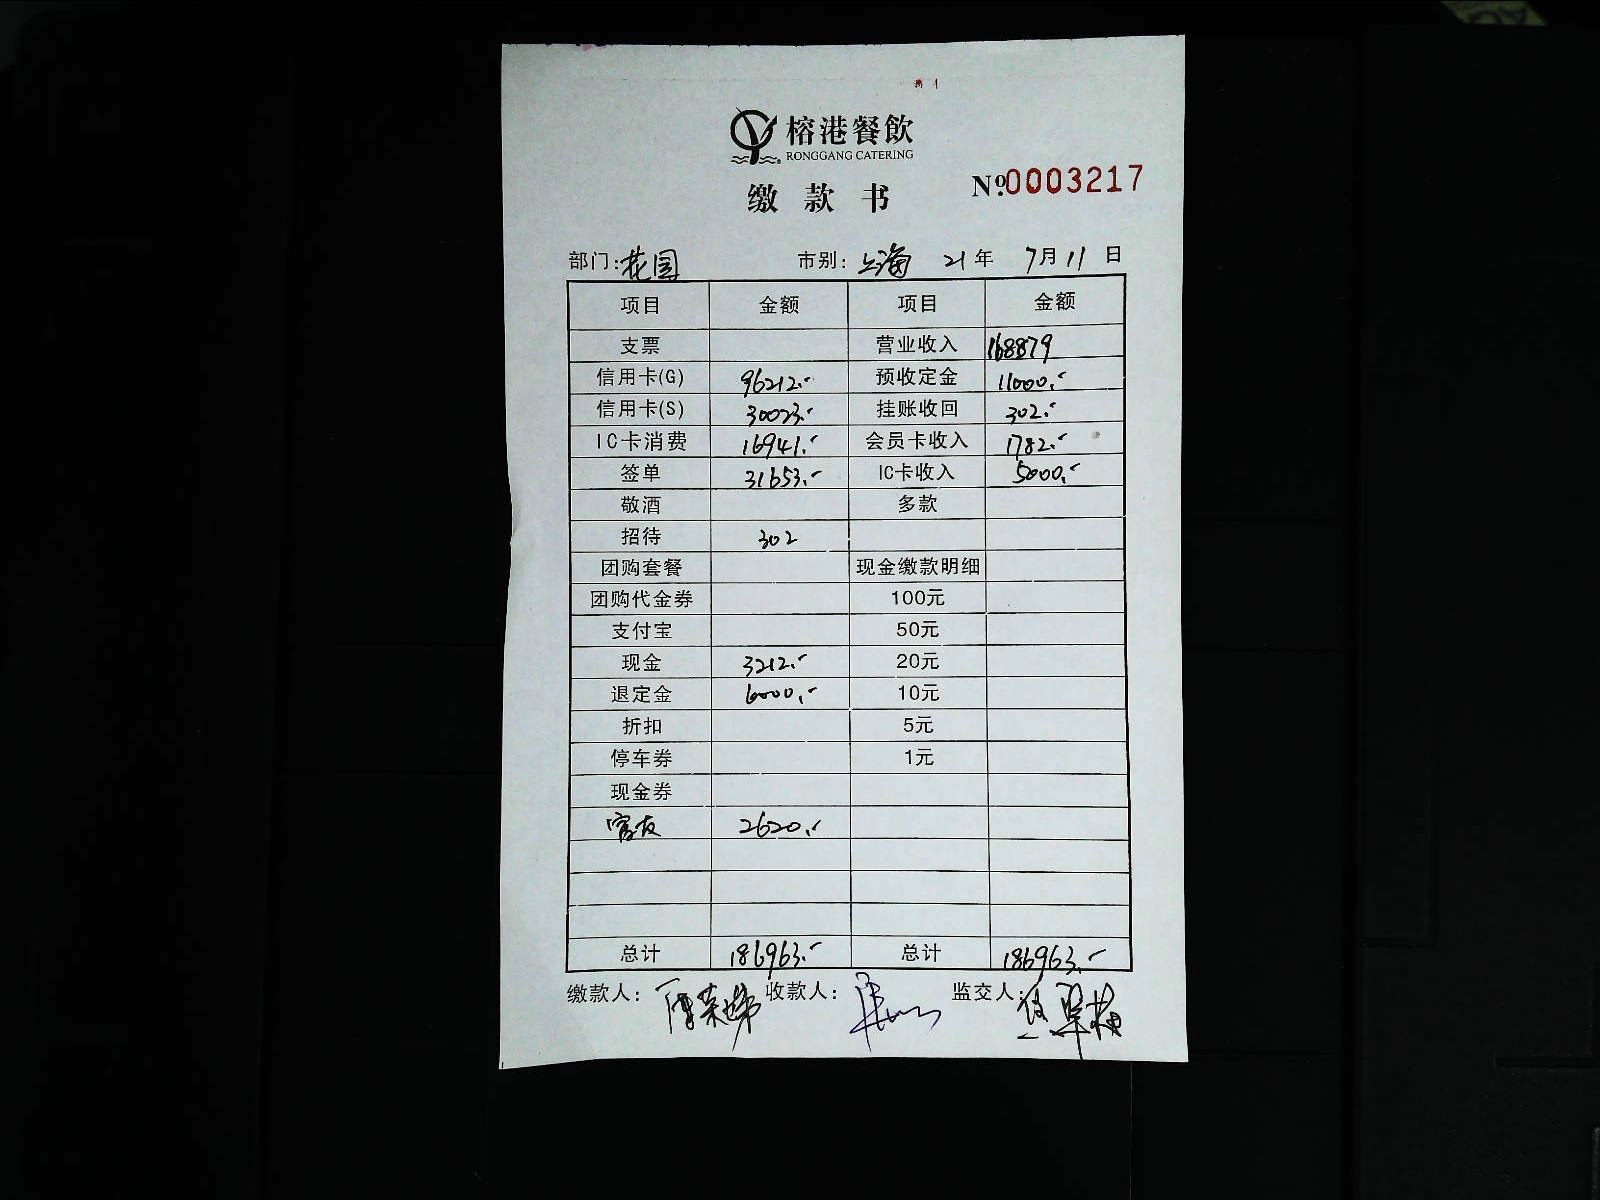 榕港餐飲
RONGGANG CATERING
缴款书 №0003217
部门:花园 市别:上海 21年 7月11日
项目 金额 项目 金额
支票 营业收入 168879
信用卡(G) 96212.- 预收定金 11000.-
信用卡(S) 30023.- 挂账收回 302.-
IC卡消费 16941.- 会员卡收入 1782.-
签单 31653.- IC卡收入 5000.-
敬酒 多款
招待 302
团购套餐 现金缴款明细
团购代金券 100元
支付宝 50元
现金 3212.- 20元
退定金 6000.- 10元
折扣 5元
停车券 1元
现金券
富友 2620.-
总计 186963.- 总计 186963.-
缴款人: 收款人: 监交人: